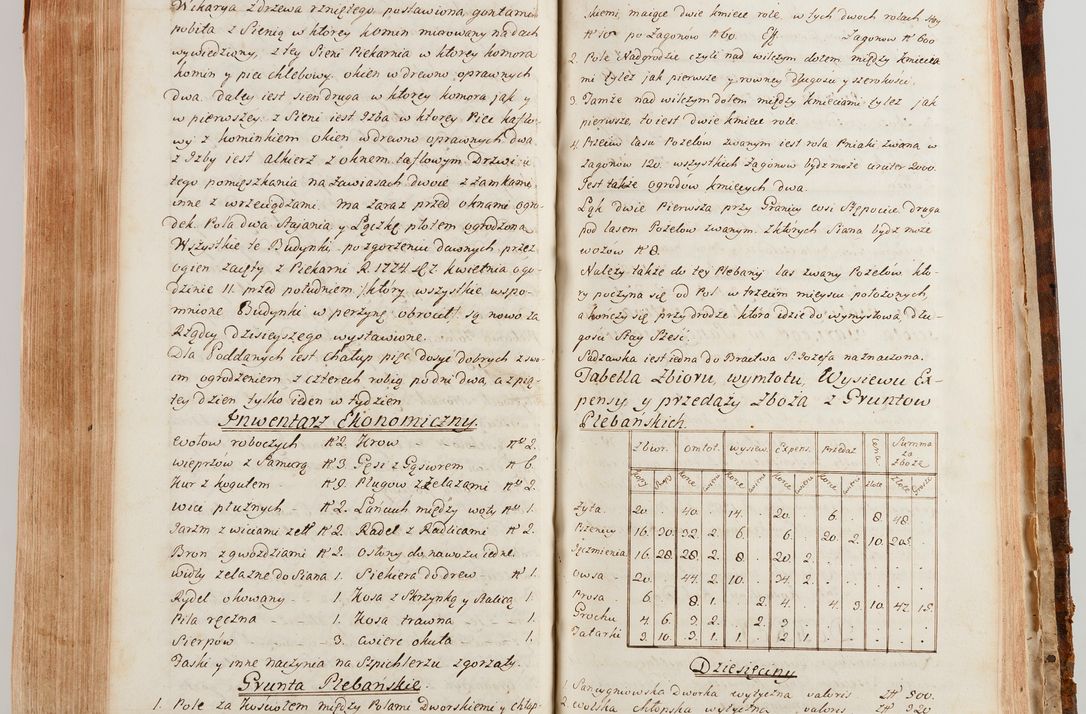 Wikarya z drzewa rzniętego postawiona gontami
pobita z Sienią w ktorey komin murowany na dach
wywiedziony, z tey Sieni Piekarnia w ktorey komora
komin y piec chlebowy, okien w drewno oprawnych
dwa. daley iest sien druga w ktorey komora jak y
w pierwszey. z Sieni iest Izba w ktorey Piec kaflo-
wy z kominkiem okien w drewno oprawnych dwa.
z Izby iest alkierz z oknem taflowym Drzwi u
tego pomięszkania na zawiasach dwoie z zamkami
inne z wrzeciądzami. ma zaraz przed oknami ogro-
dek. Pola dwa Stajania y Łączkę płotem ogrodzoną
Wszystkie te Budynki po zgorzeniu dawnych przez
ogien zaięty z Piekarni R. 1774. kwietnia o go-
dzinie 11. przed południem /: ktory wszystkie wspo-
mnione Budynki w perzynę obrocił są nowo za
Rządcy dzisieyszego wystawione.
Dla Poddanych iest chałup pięć dosyć dobrych z swo-
im ogrodzeniem z czterech robią po dni dwa, a z pią-
tey dzien tylko ieden w tydzien
Inwentarz Ekonomiczny.
Wołow roboczych N° 2. Krow - N° 2.
wieprzow z Samurą N° 3. Gęsi z Gąsiorem N° 6.
Kur z kogutem N° 9. Pługow z żelazami N° 2.
wici płużnych - N° 2. Łancuch między woły N° 1.
Jarzm z wiciami N° 2. Radeł z Radlicami N° 2.
Bron z gwoździami N° 2. Osłony do nawozu iedne.
widły zelazne do Siana 1. Siekiera do drew - N° 1.
Rydel okowany - 1. Kosa z Skrzynką y Stalicą 1.
Piła ręczna - 1. Kosa trawna - 1.
Sierpow - 3. cwierc okuta - 1.
Faski y inne naczynia na Szpichlerzu zgorzały.
Grunta Plebańskie.
1. Pole za Kościołem między Polami Dworskiemi y chłop-
skiemi, maiące dwie kmiece role, w tych dwoch rolach
po Zagonow N° 60. Zagonow N° 600
2. Pole Nadgrodzie czyli nad wilczym dołem między kmiecia-
mi tyleż jak pierwsze y rowney długości y szerokości.
3. Tamże nad wilczym dołem między kmieciami tyleż jak
pierwsze, to iest dwie kmiece role.
4. Przeciw lasu Pozełow zwanym iest rola Pniaki zwana w
zagonow 120. wszystkich Zagonow bydz moze 2000.
Jest także ogrodow kmięcych dwa.
Łąk dwie Pierwsza przy Granicy wsi Stępocice druga
pod lasem Pozełow zwanym. z ktorych Siana bydz moze
wozow N° 8.
Należy także do tey Plebanij las zwany Pozełow kto-
ry poczyna się od Pol w trzecim mieyscu położonych,
a kończy się przy drodze ktora idzie do wymysłowa, dłu-
gości Stay Sześć.
Sadzawka iest iedna do Bractwa S. Jozefa naznaczona.
Tabella Zbioru, wymłotu, Wysiewu Ex-
pensy y przedaży Zboża z Gruntow
Plebańskich.
Zbior. Omłot. wysiew. Expens. Przedaż Cena Summa za zboże
Kopy Snop korce korce korce korce Zlote Złote Grosze
Żyta - 20. . 40. . 14. . 20. . 6. . 8. 48. .
Pszenicy 16. 30. 32. 2. 6. . 6. . 20. 2. 10. 205. .
Jęczmienia 16. 28. 28. 2. 8. . 20. 2. . . . . .
Owsa - 20. . 44. 2. 10. . 34. 2. . . . . .
Prosa 6. . 8. 1. . 2. 4. . 4. 3. 10. 47. 15.
Grochu 4. 6. 3. 2. . 2. 3. . . . . . .
Tatarki 3. 10. 3. 1. 1. . 2. 1. . . . . .
Dziesięciny
1. Sancygniowska Dworka wytyczna valoris Zł° 500.
2. Wolska chłopska wytyczna valoris Zł° 320